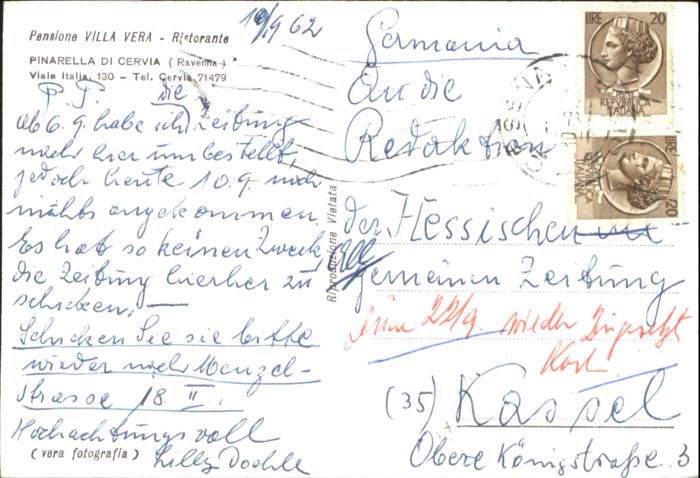 10/9 62
Pensione VILLA VERA - Ristorante
PINARELLA DI CERVIA (Ravenna)
Viale Italia, 130 - Tel. Cervia 71479
P. P.
die
ab 6. 9. habe ich Zeitung
nach hier umbestellt,
jedoch heute 10. 9. noch
nichts angekommen.
Es hat so keinen Zweck,
die Zeitung hierher zu
schicken. —
Schicken Sie sie bitte
wieder nach Menzel-
strasse 18 II.
Hochachtungsvoll
(vera fotografia)
Lilly Doehle
Riproduzione Vietata
Germania
An die
Redaktion
der Hessischen
Allgemeinen Zeitung
22/9. wieder
(35) Kassel
Obere Königstraße 3
LIRE 20
REPVBBLICA
ITALIANA
LIRE 20
REPVBBLICA
ITALIANA